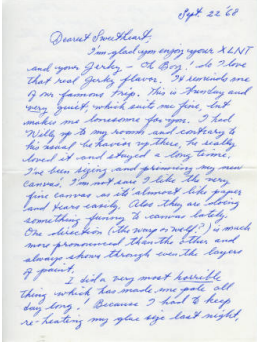 Sept. 22 '68
Dearest Sweetheart,
I'm glad you enjoy your XLNT
and your Jerky - Oh Boy! do I love
that real Jerky flavor. It reminds me
of our famous trip. This is Sunday and
very quiet which suits me fine, but
makes me lonesome for you. I had
Willy up to my room and contrary to
his usual behavior up there, he really
loved it and stayed a long time.
I've been sizing and priming my new
canvas, I'm not sure I like the very
fine canvas as it's almost like paper
and tears easily. Also they are doing
something funny to canvas lately.
One direction (the warp or woof?) is much
more pronounced than the other and
always shows through even the layers
of paint.
I did a very most horrible
thing which has made me pale all
day long! Because I had to keep
re-heating my glue size last night,